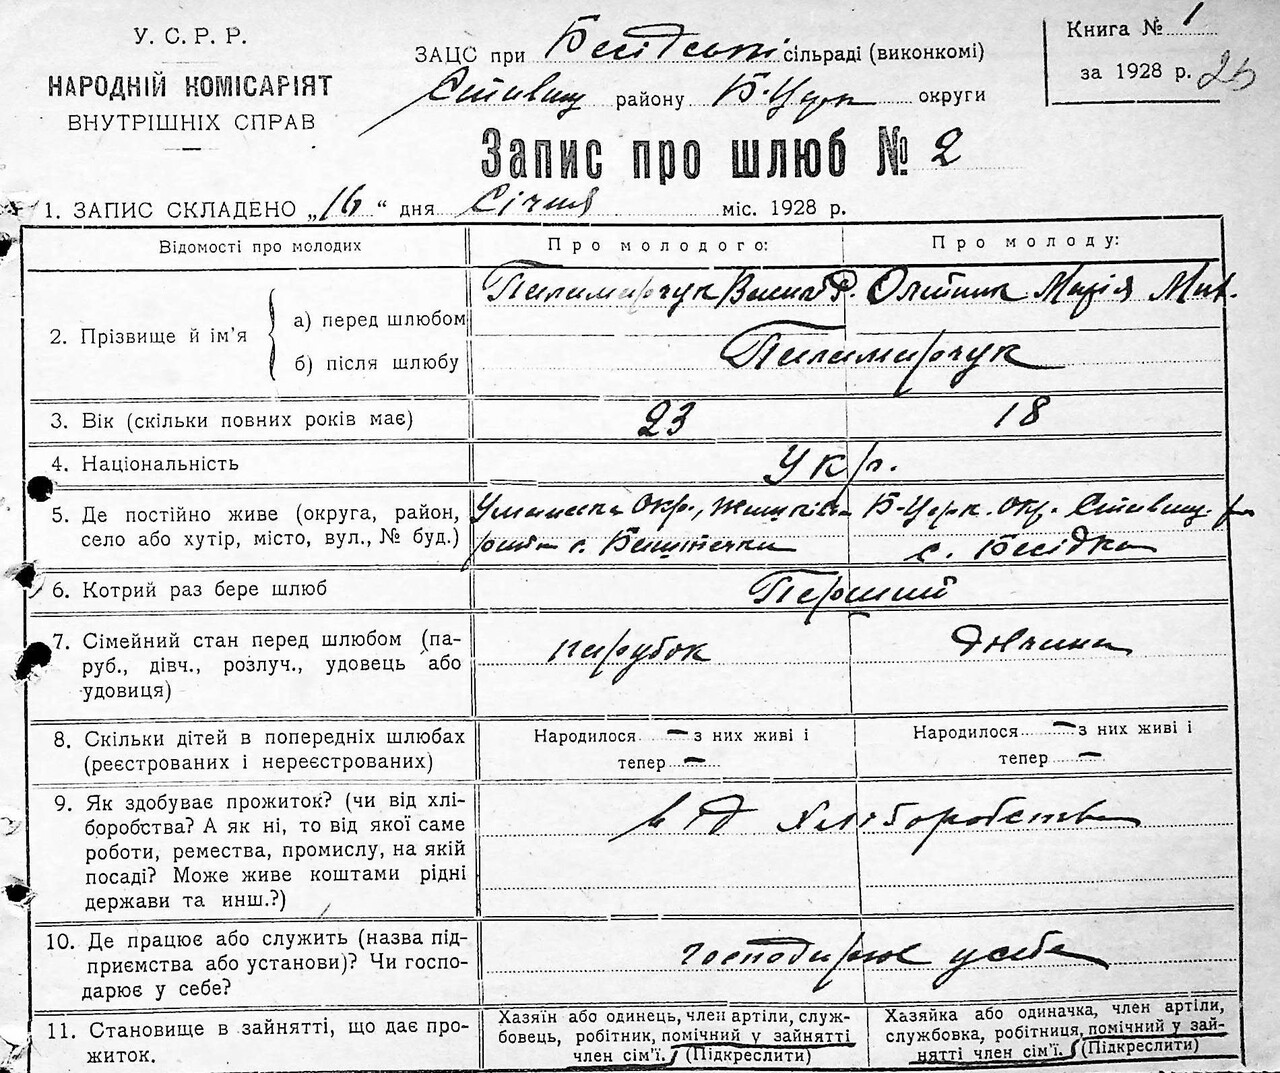 У. С. Р. Р.
НАРОДНІЙ КОМІСАРІЯТ
ВНУТРІШНІХ СПРАВ
ЗАЦС при Бесідській сільраді (виконкомі)
Ставищ району Б-Церк округи
Книга № 1
за 1928 р. 26
Запис про шлюб № 2
1. ЗАПИС СКЛАДЕНО „16“ дня Січня міс. 1928 р.
Відомості про молодих
Про молодого:
Про молоду:
2. Прізвище й ім’я
а) перед шлюбом
б) після шлюбу
Паламарчук Василь Олійник Марія Мик.
Паламарчук
3. Вік (скільки повних років має)
23
18
4. Національність
Укр.
5. Де постійно живе (округа, район,
село або хутір, місто, вул., № буд.)
Уманська Окр.,
с.
Б-Церк. Окр. Ставищ. р-н
с. Бесідка
6. Котрий раз бере шлюб
Перший
7. Сімейний стан перед шлюбом (па-
руб., дівч., розлуч., удовець або
удовиця)
парубок
дівчина
8. Скільки дітей в попередніх шлюбах
(реєстрованих і нереєстрованих)
Народилося — з них живі і
тепер —
Народилося — з них живі і
тепер —
9. Як здобуває прожиток? (чи від хлі-
боробства? А як ні, то від якої саме
роботи, ремества, промислу, на якій
посаді? Може живе коштами рідні
держави та инш.?)
від хліборобства
10. Де працює або служить (назва під-
приємства або установи)? Чи госпо-
дарює у себе?
господарює у себе
11. Становище в зайнятті, що дає про-
житок.
Хазяїн або одинець, член артілі, служ-
бовець, робітник, помічний у зайнятті
член сім’ї. (Підкреслити)
Хазяйка або одиначка, член артілі,
службовка, робітниця, помічний у зай-
нятті член сім’ї. (Підкреслити)